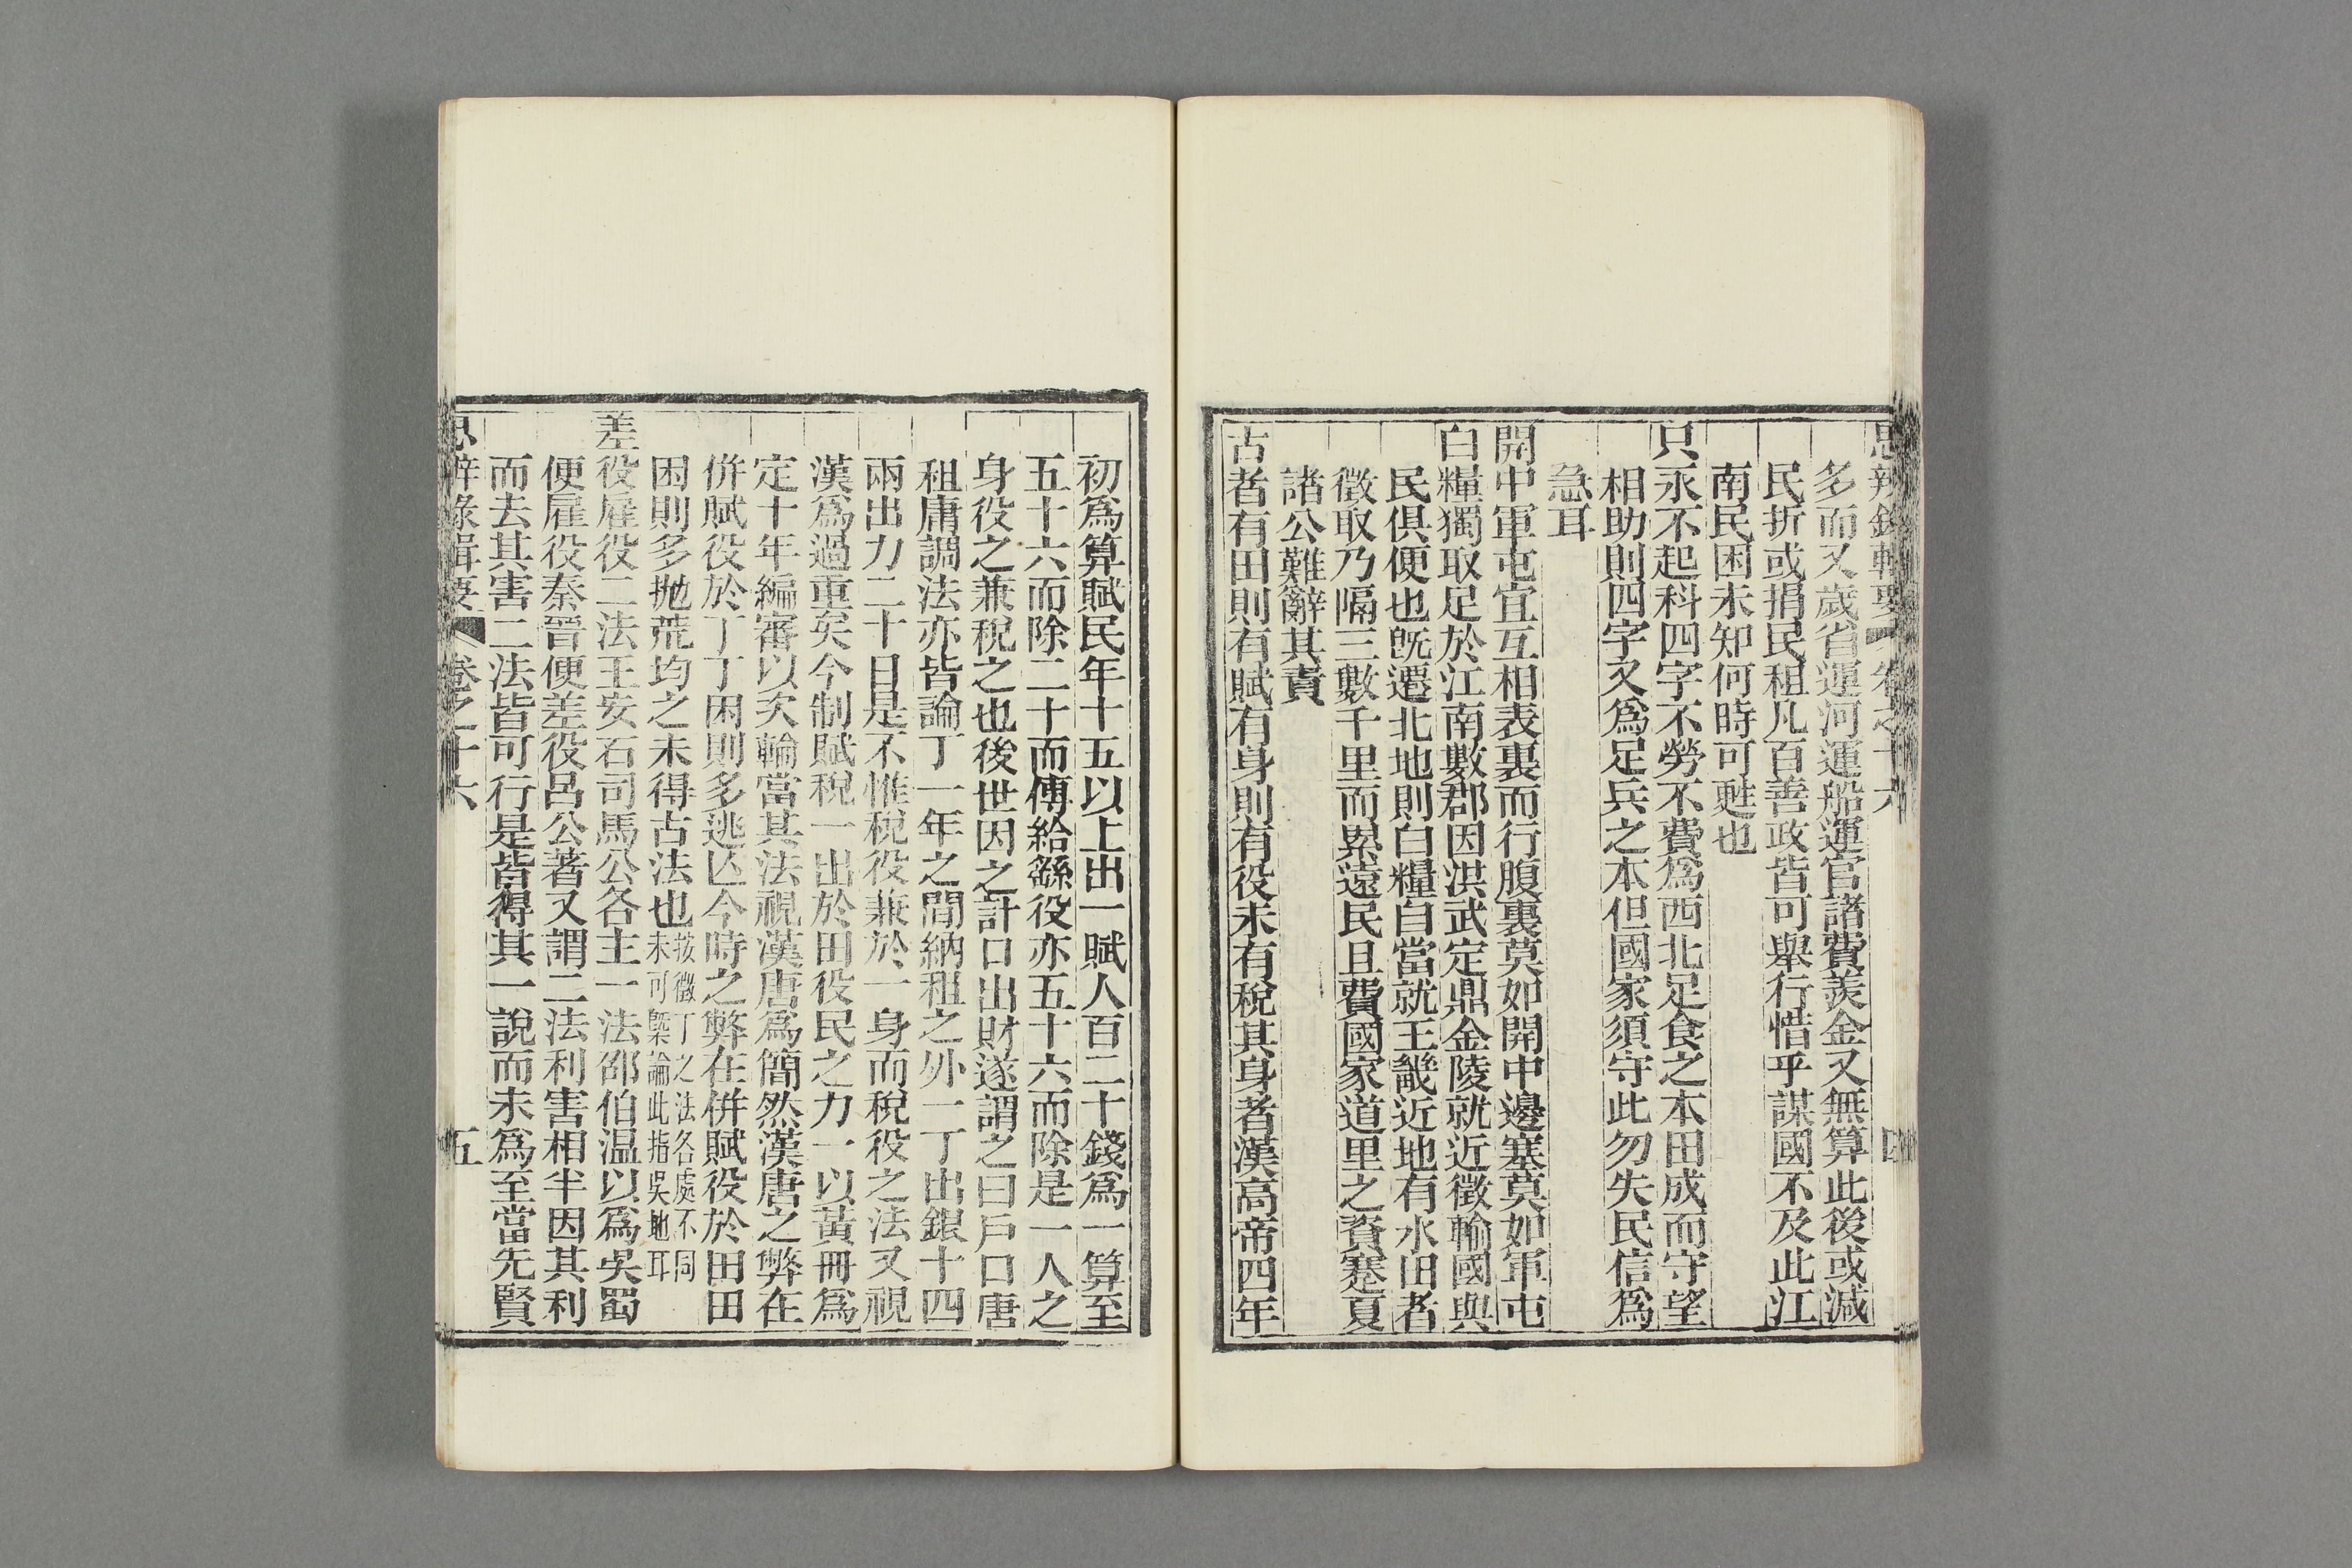 思辨錄輯要 卷之十六 四
多而又歲省運河運船運官諸費羨金又無算此後或減
民折或捐民租凡百善政皆可舉行惜乎謀國不及此江
南民困未知何時可甦也
只永不起科四字不勞不費爲西北足食之本田成而守望
相助則四字又爲足兵之本但國家須守此勿失民信爲
急耳
開中軍屯宜互相表裏而行腹裏莫如開中邊塞莫如軍屯
白糧獨取足於江南數郡因洪武定鼎金陵就近徵輸國與
民俱便也旣遷北地則白糧自當就王畿近地有水田者
徵取乃隔三數千里而累遠民且費國家道里之資蹇夏
諸公難辭其責
古者有田則有賦有身則有役未有稅其身者漢高帝四年
初爲算賦民年十五以上出一賦人百二十錢爲一算至
五十六而除二十而傅給繇役亦五十六而除是一人之
身役之兼稅之也後世因之計口出財遂謂之曰戶口唐
租庸調法亦皆論丁一年之間納租之外一丁出銀十四
兩出力二十日是不惟稅役兼於一身而稅役之法又視
漢爲過重矣今制賦稅一出於田役民之力一以黃冊爲
定十年編審以次輪當其法視漢唐爲簡然漢唐之弊在
併賦役於丁丁困則多逃亾今時之弊在併賦役於田田
困則多拋荒均之未得古法也按徵丁之法各處不同
未可槩論此指吳地耳
差役雇役二法王安石司馬公各主一法邵伯温以爲吳蜀
便雇役秦晉便差役呂公著又謂二法利害相半因其利
而去其害二法皆可行是皆得其一說而未爲至當先賢
思辨錄輯要 卷之十六 五